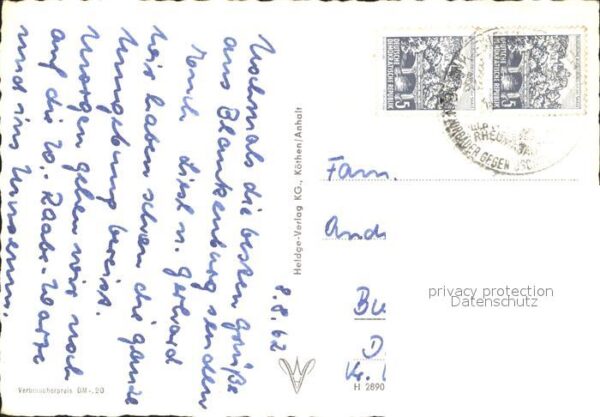 8.8.62
Nochmals die besten Grüße
aus Blankenburg senden
Euch Liesl u. Gerhard
Wir haben schon die ganze
Umgebung bereist.
Morgen gehen wir noch
auf die W. Raabe-Warte
und ins
Verbraucherpreis DM -,20
Heldge-Verlag KG., Köthen/Anhalt
5
DEUTSCHE
DEMOKRATISCHE REPUBLIK
5
DEUTSCHE
DEMOKRATISCHE REPUBLIK
GEGEN
Fam.
And
Bu
D
Kr.
H 2890
privacy protection
Datenschutz